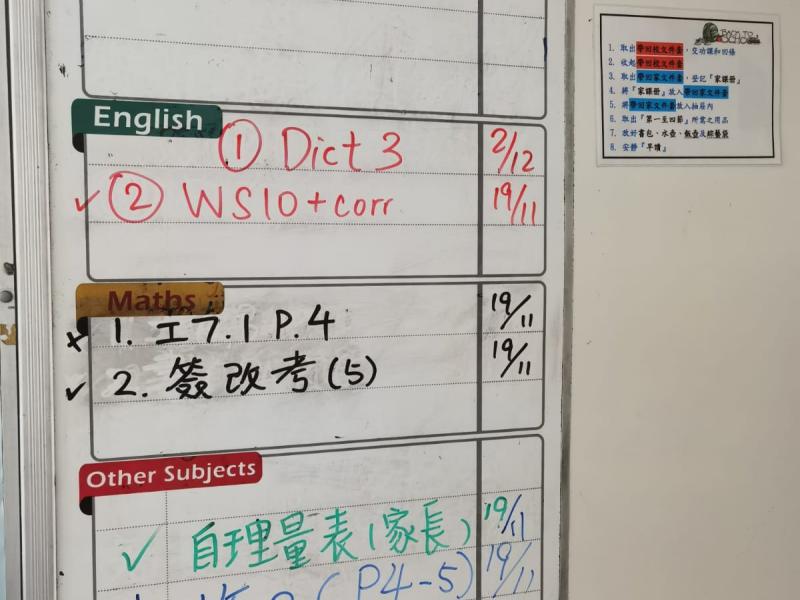 English
① Dict 3 2/12
✓ ② WS10+corr 19/11
Maths
x 1. 工7.1 P.4 19/11
✓ 2. 簽改考(5) 19/11
Other Subjects
✓ 自理量表(家長) 19/11
(P4-5) 19/11
BACK TO SCHOOL
1. 取出帶回校文件套，交功課和回條
2. 收起帶回校文件套
3. 取出帶回家文件套，登記『家課冊』
4. 將『家課冊』放入帶回家文件套
5. 將帶回家文件套放入抽屜內
6. 取出『第一至四節』所需之用品
7. 放好書包、水壺、飯壺及綜藝袋
8. 安靜『早讀』